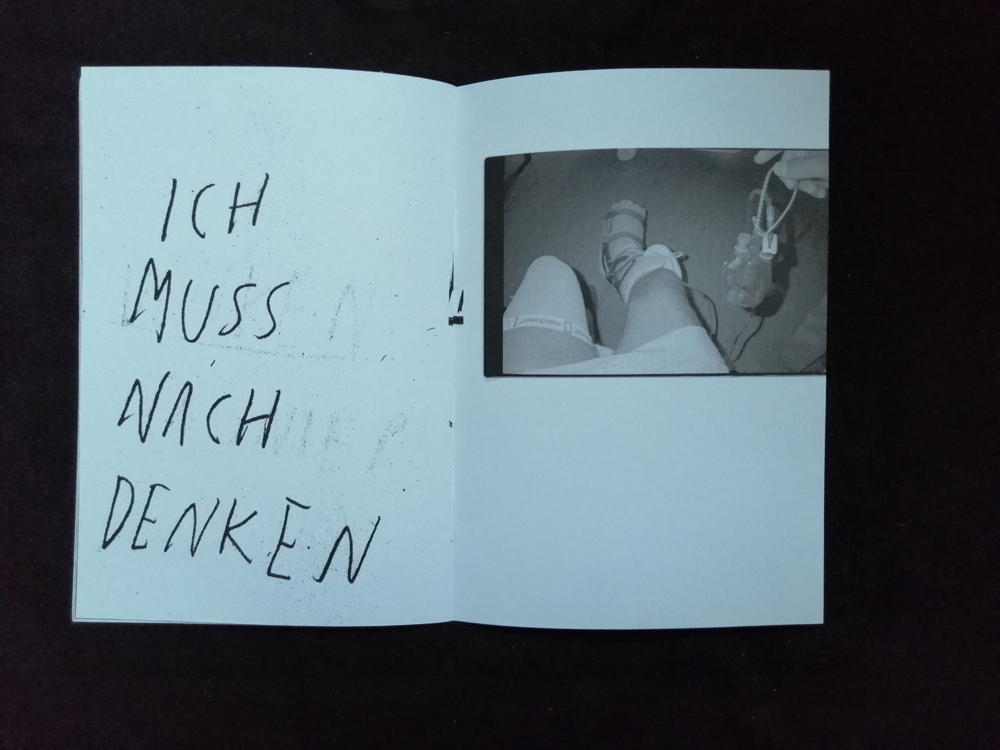 ICH
MUSS
NACH
DENKEN